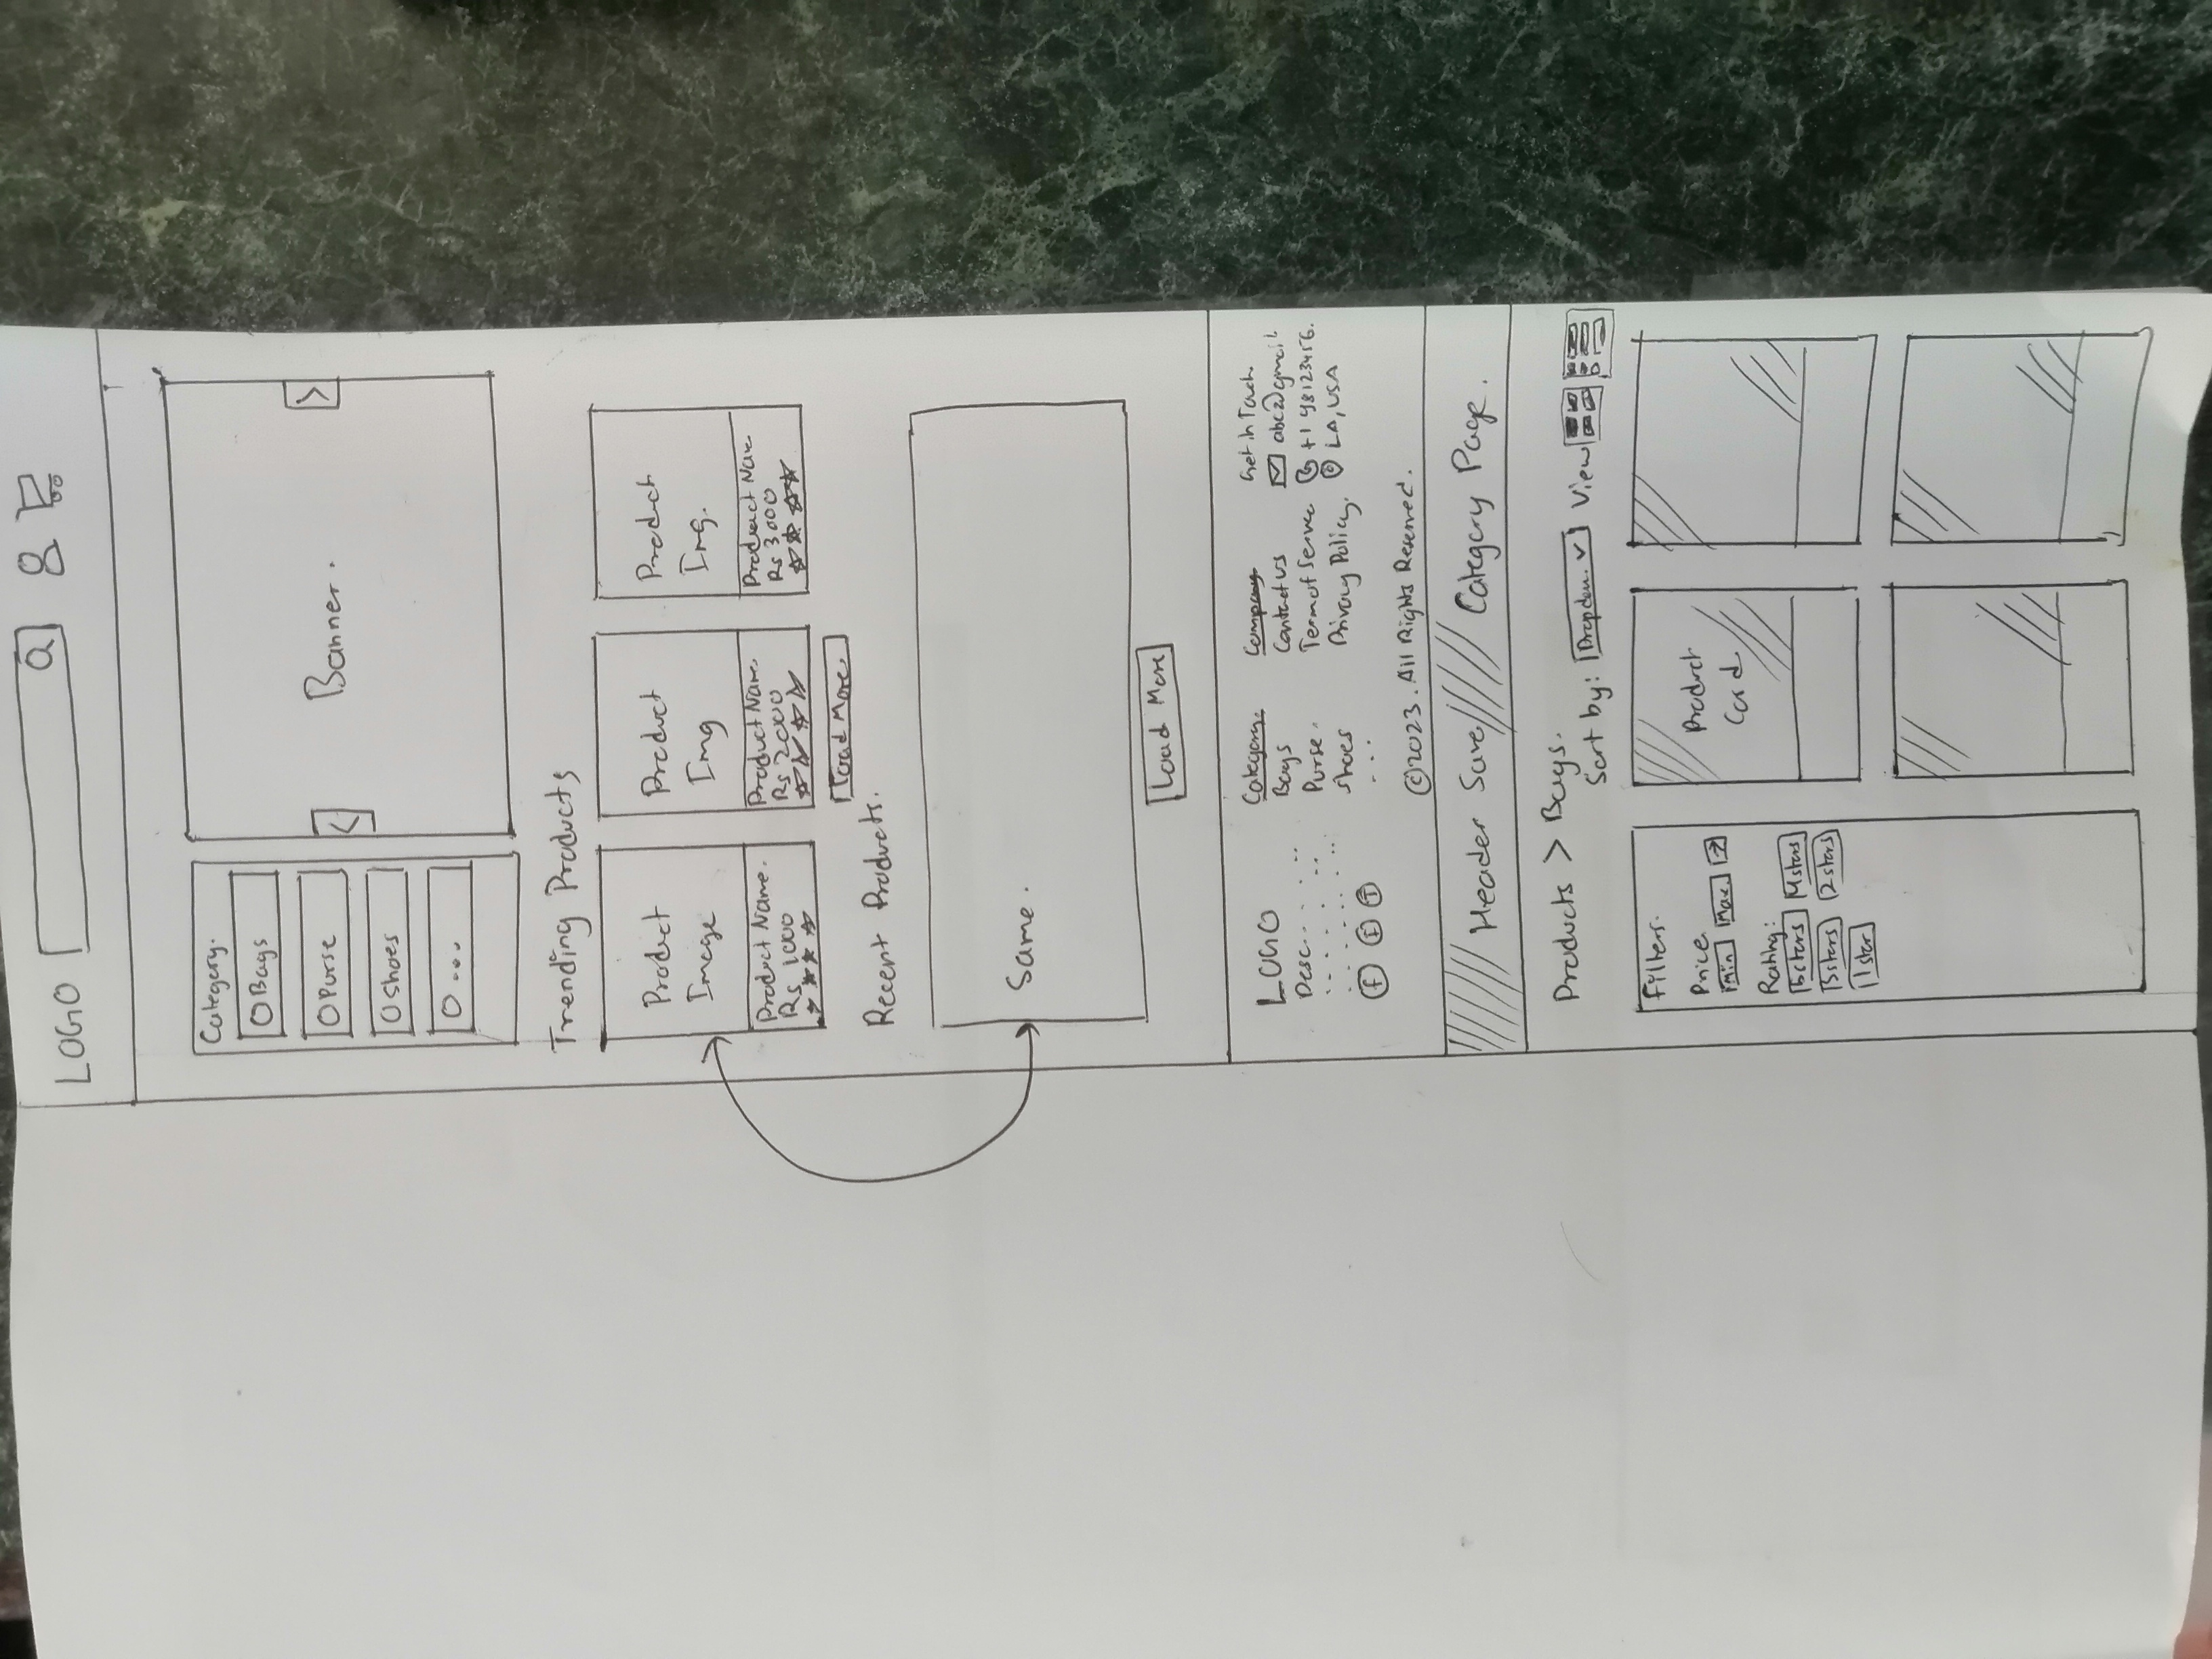 LOGO
Category.
Bags
Purse
Shoes
...
Banner.
Trending Products
Product
Image
Product Name.
Rs 1000
Product
Img
Product Name
Rs 2000
Product
Img.
Product Name
Rs 3000
Load More
Recent Products.
Same.
Load More
LOGO
Desc.
f
I
T
Category.
Bags
Purse
Shoes
...
Company
Contact us
Term of Service
Privacy Policy.
Get in Touch
abc@gmail
+1 98123456.
LA, USA
©2023. All Rights Reserved.
Header Same
Category Page.
Products > Bags.
Sort by:
View
Filters.
Price
Min
Max.
Rating:
5 stars
4 stars
3 stars
2 stars
1 star
Product
Card